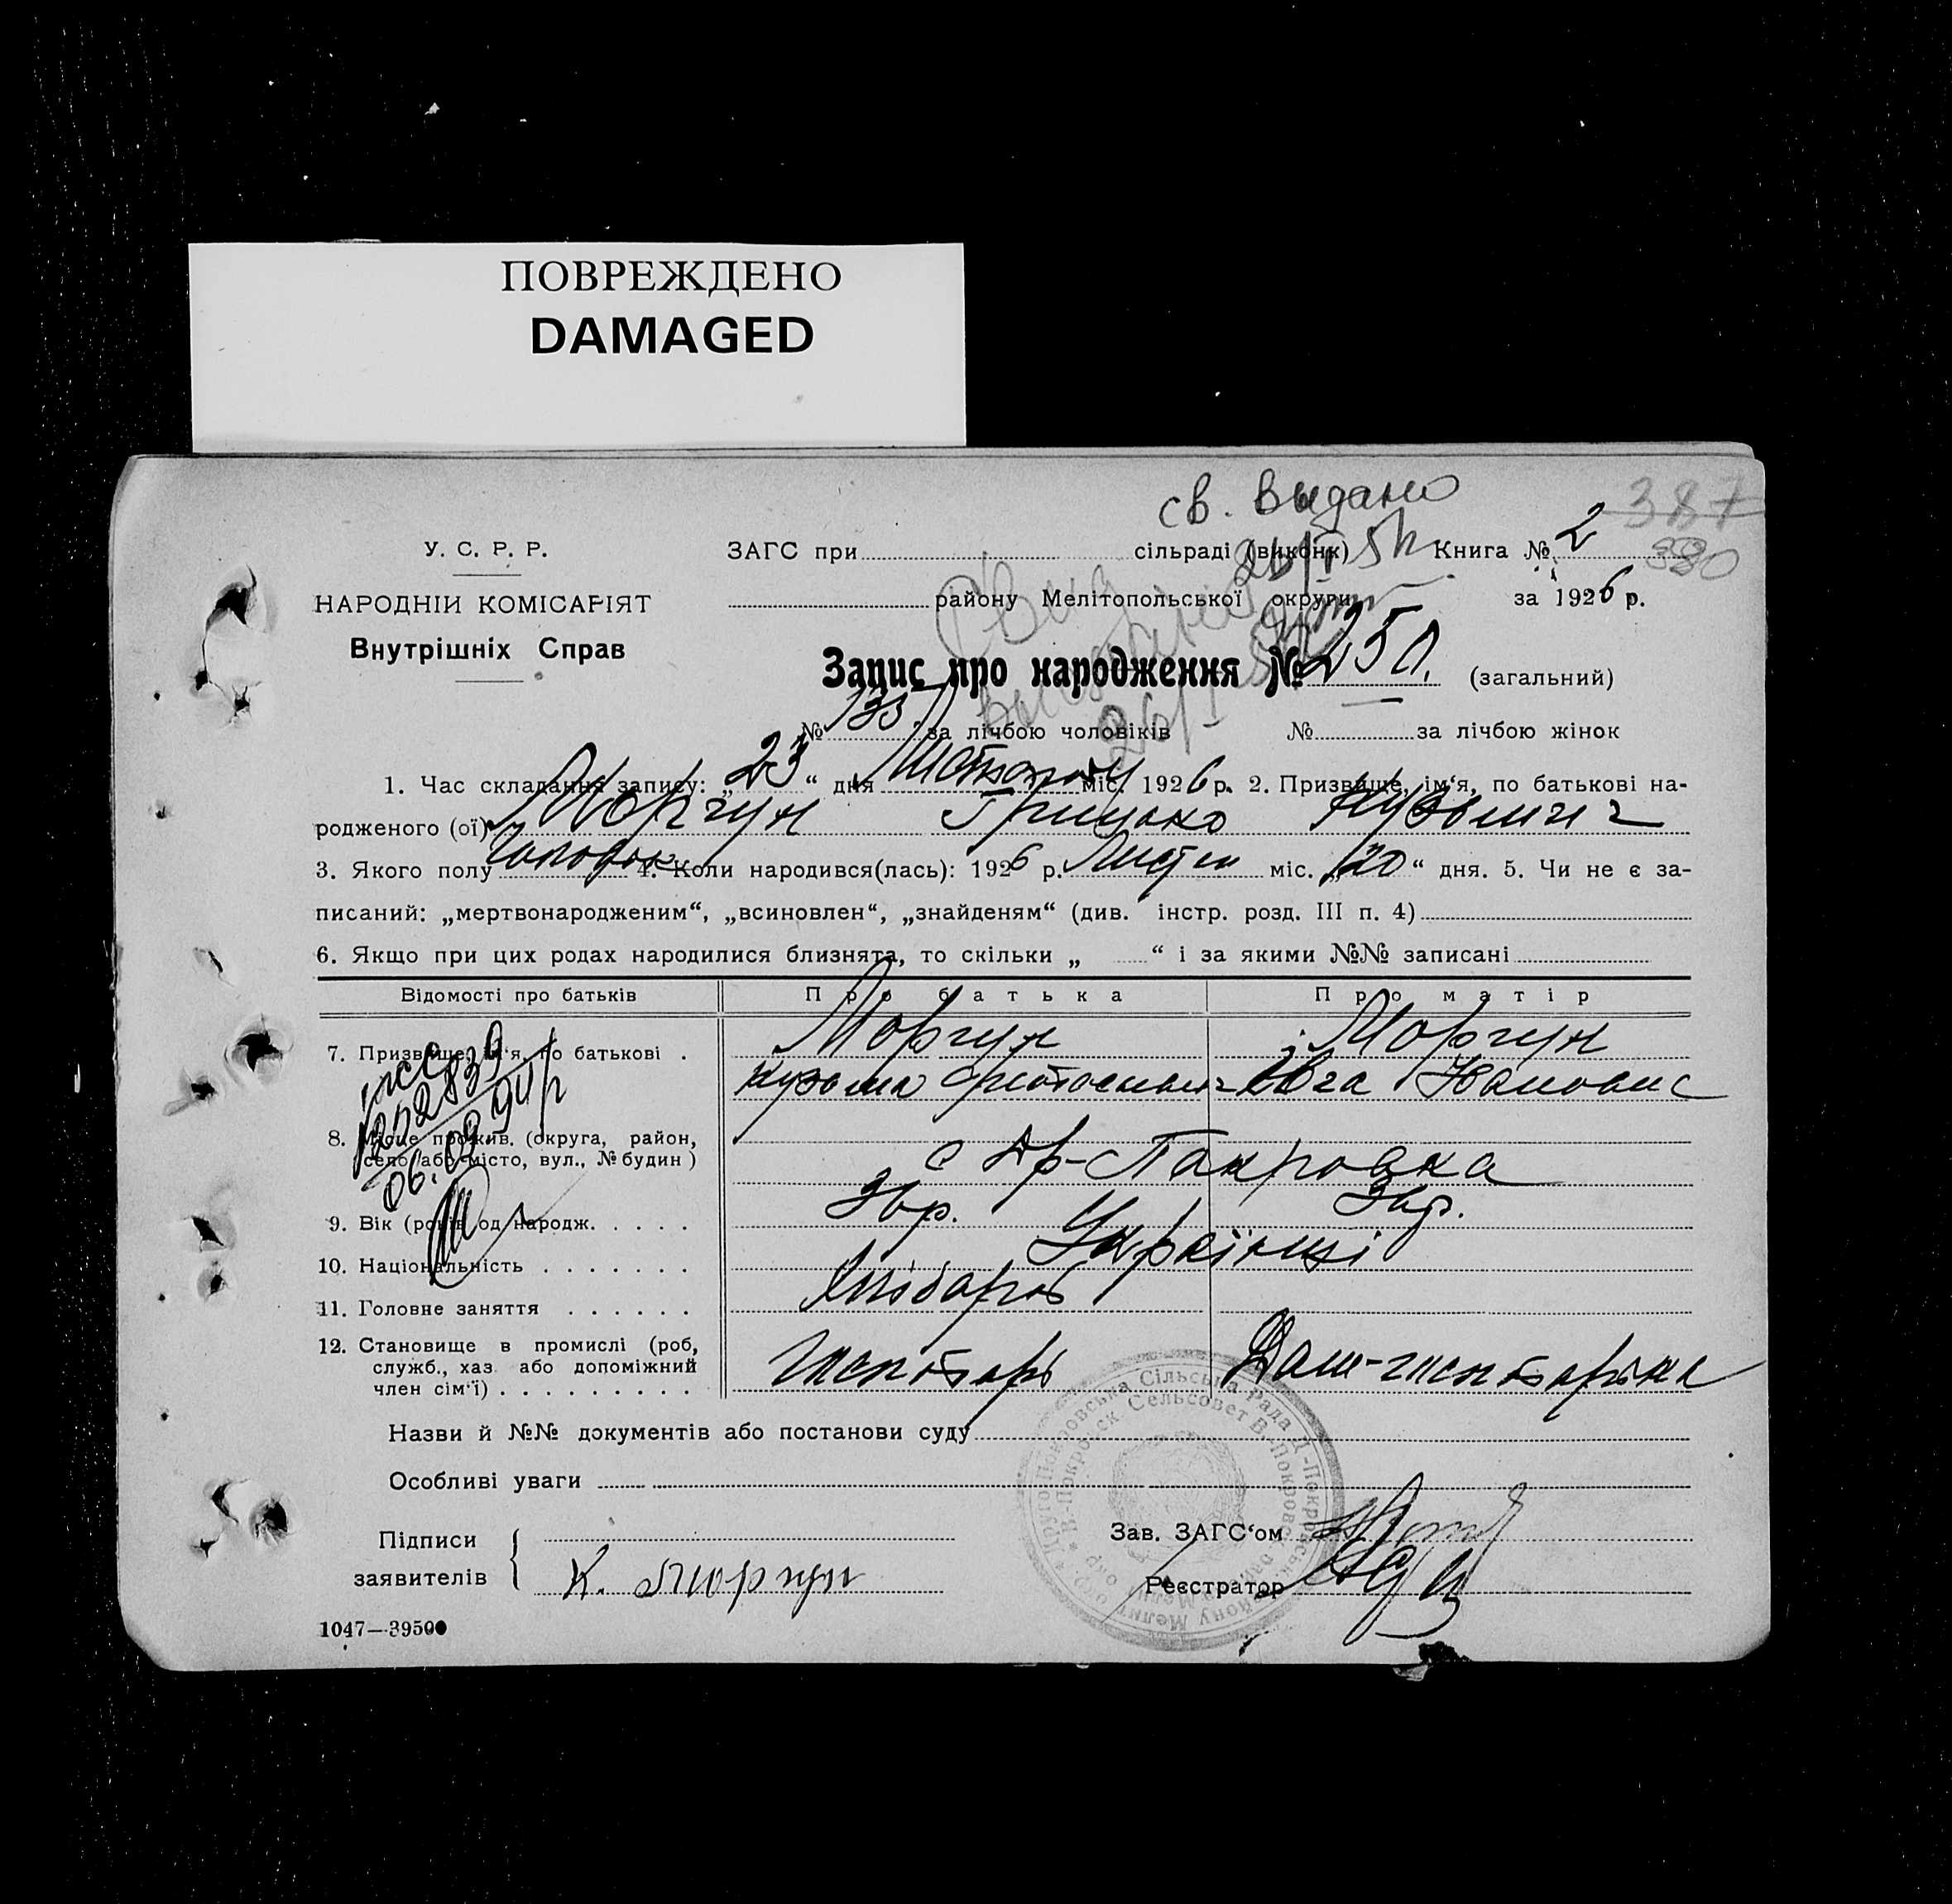 ПОВРЕЖДЕНО
DAMAGED
св. выдано
387
380
У. С. Р. Р.
ЗАГС при сільраді (виконк) Книга № 2
НАРОДНІЙ КОМІСАРІЯТ
району Мелітопольської округи за 1926 р.
Внутрішніх Справ
Запис про народження № 250. (загальний)
№ 135 за лічбою чоловіків № за лічбою жінок
1. Час складання запису: „23“ дня Листопаду міс. 1926 р. 2. Призвище, ім‘я, по батькові на-
родженого (ої) Моргун Грицько Кузьмич
3. Якого полу Чоловік 4. Коли народився(лась): 1926 р. Листоп міс. „20“ дня. 5. Чи не є за-
писаний: „мертвонародженим“, „всиновлен“, „знайденям“ (див. інстр. розд. III п. 4)
6. Якщо при цих родах народилися близнята, то скільки „ “ і за якими №№ записані
Відомості про батьків Про батька Про матір
7. Призвище, ім‘я, по батькові . Моргун Моргун
Кузьма Ївга Ивановна
8. Місце прожив. (округа, район,
село або місто, вул., № будин)
с Др-Покровка
9. Вік (років од народж. . . . .
10. Національність . . . . . . . Українці
11. Головне заняття . . . . . . Хлібороб
12. Становище в промислі (роб,
служб., хаз або допоміжний
член сім‘ї) . . . . . . . . .
06.09.90 р
Назви й №№ документів або постанови суду
Особливі уваги
Підписи
заявителів
К. Моргун
Зав. ЗАГС‘ом
Реєстратор
Друго-Покровська Сільська Рада Д-Покровськ району Мелит окр
В-Покровск. Сельсовет В-Покровск
1047—39500